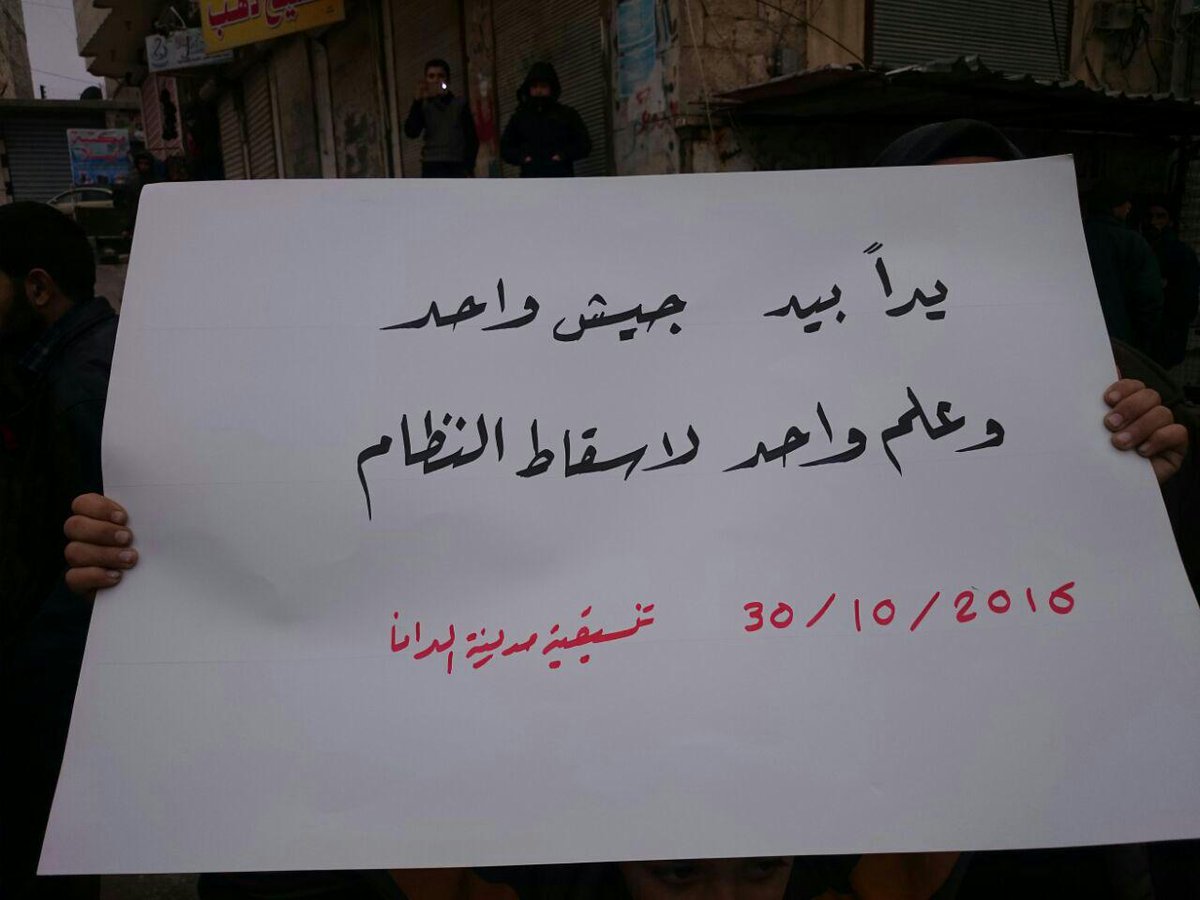 ذهب
يداً بيد جيش واحد
وعلم واحد لاسقاط النظام
30/10/2016 تنسيقية مدينة الدانا